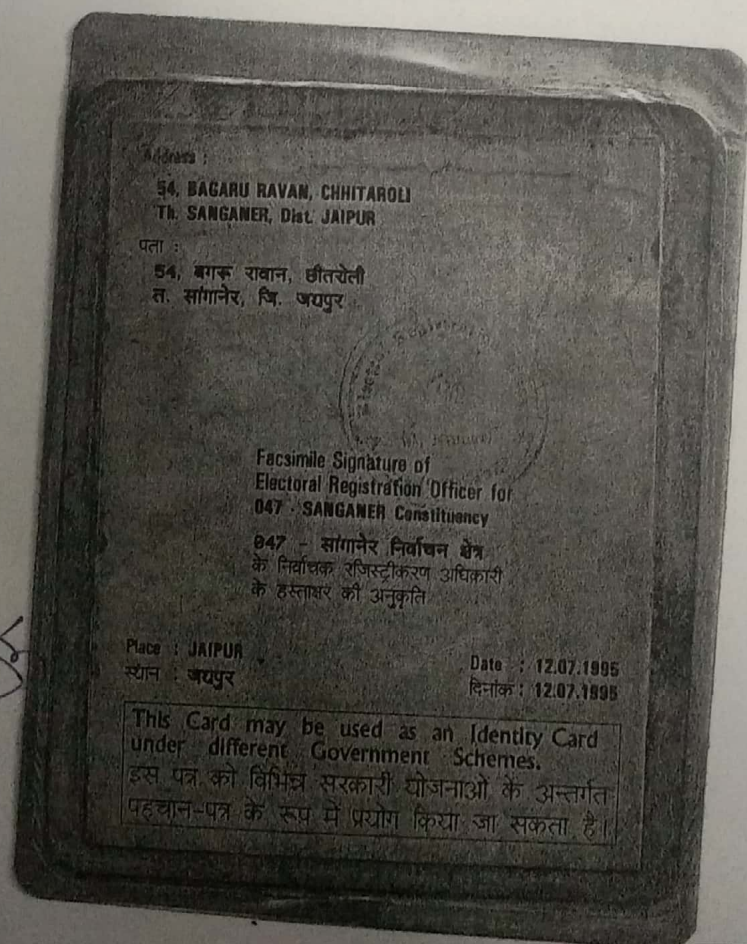 Address :
54, BAGARU RAVAN, CHHITAROLI
Th. SANGANER, Dist. JAIPUR
पता :
54, बगरू रावान, छीतरोली
त. सांगानेर, जि. जयपुर
Facsimile Signature of
Electoral Registration Officer for
047 - SANGANER Constituency
047 - सांगानेर निर्वाचन क्षेत्र
के निर्वाचक रजिस्ट्रीकरण अधिकारी
के हस्ताक्षर की अनुकृति
Place : JAIPUR
स्थान : जयपुर
Date : 12.07.1995
दिनांक : 12.07.1995
This Card may be used as an Identity Card
under different Government Schemes.
इस पत्र को विभिन्न सरकारी योजनाओं के अन्तर्गत
पहचान-पत्र के रूप में प्रयोग किया जा सकता है।